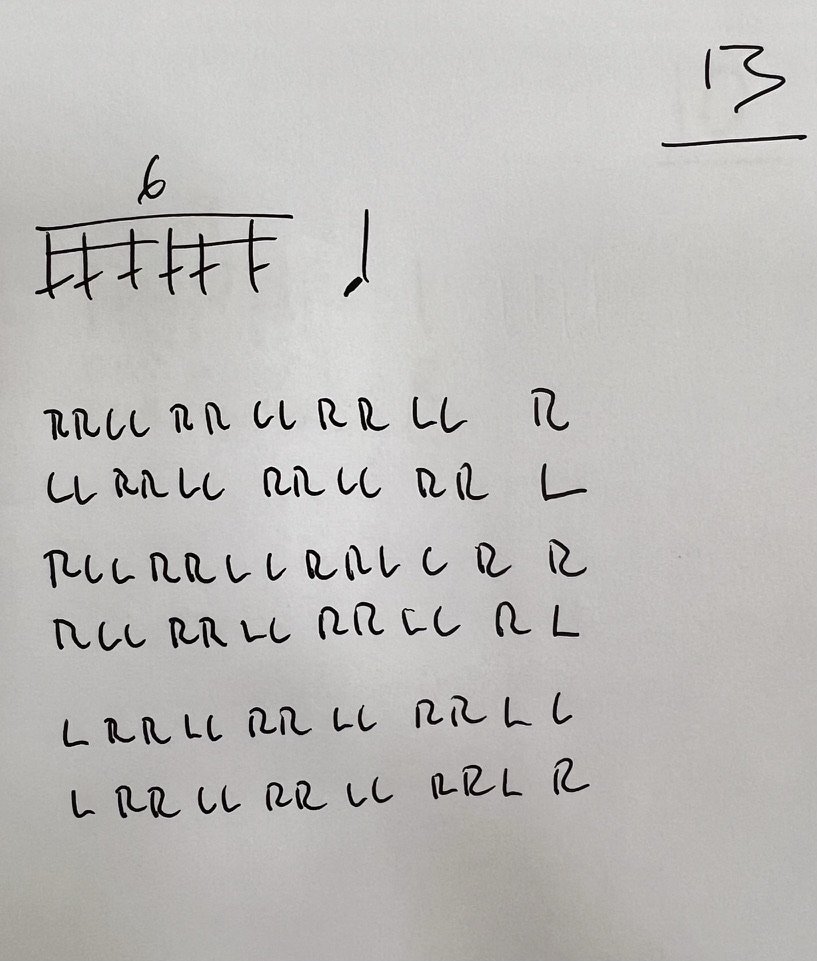 13
6
RRLL RR LL RR LL R
LL RR LL RR LL RR L
RLL RR LL RR L L R R
RLL RR LL RR LL R L
L RR LL RR LL RR L L
L RR LL RR LL RR L R